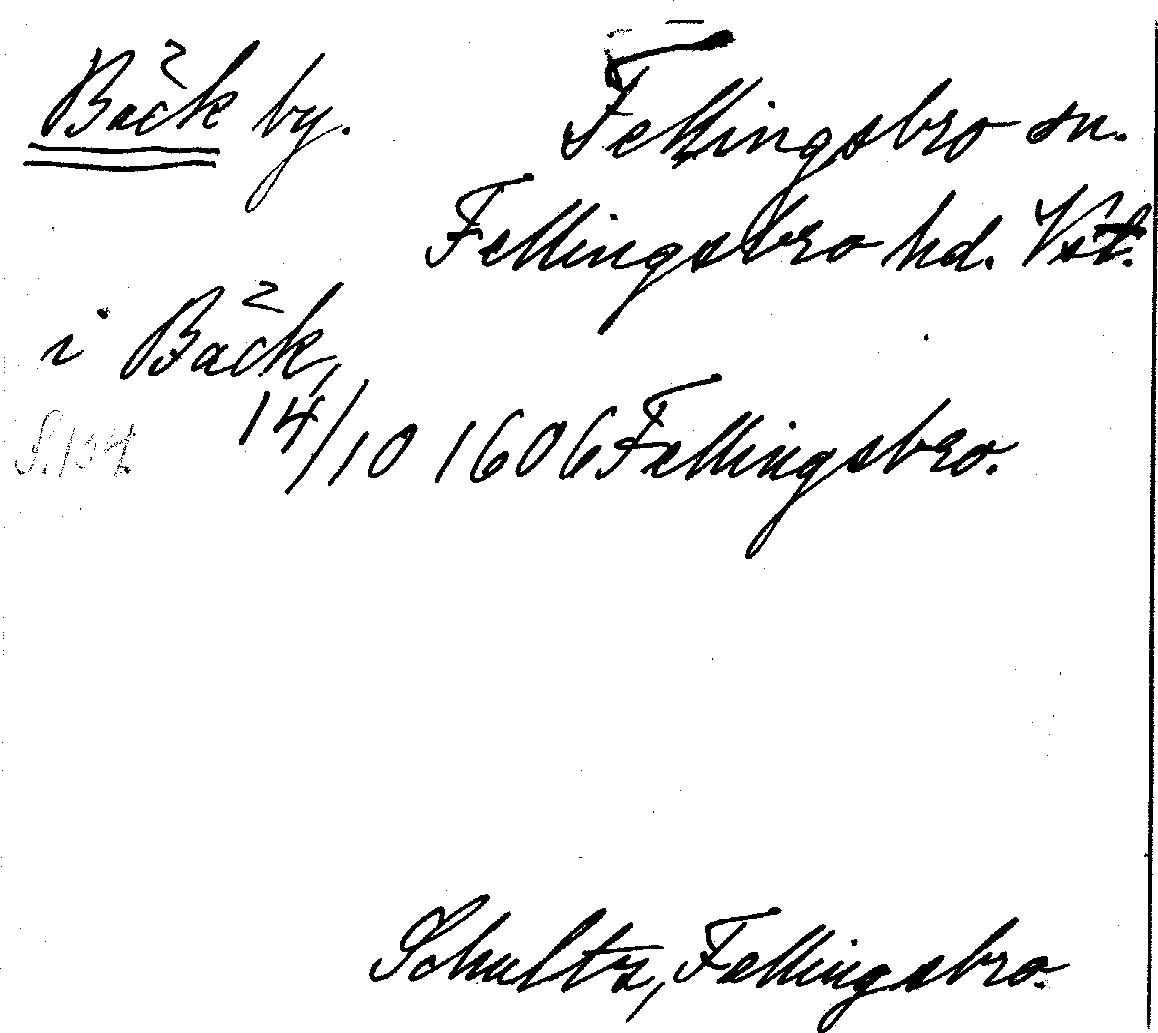 Bäck by. Fellingsbro sn.
Fellingsbro hd. Vst.
i Bäck,
14/10 1606 Fellingsbro.
Schultz, Fellingsbro.